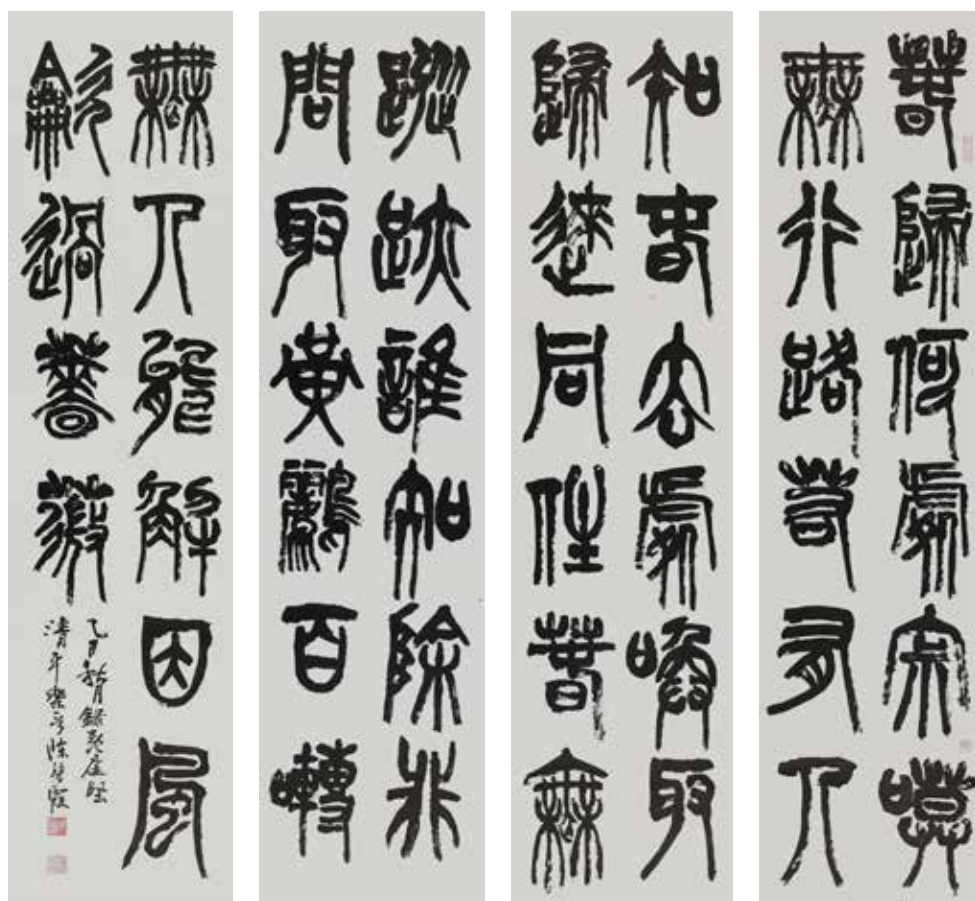 春歸何處寂寞
無行路若有人
知春去處喚取
歸來同住春無
蹤跡誰知除非
問取黃鸝百囀
無人能解因風
龡過薔薇
月錄黃庭堅
清平樂